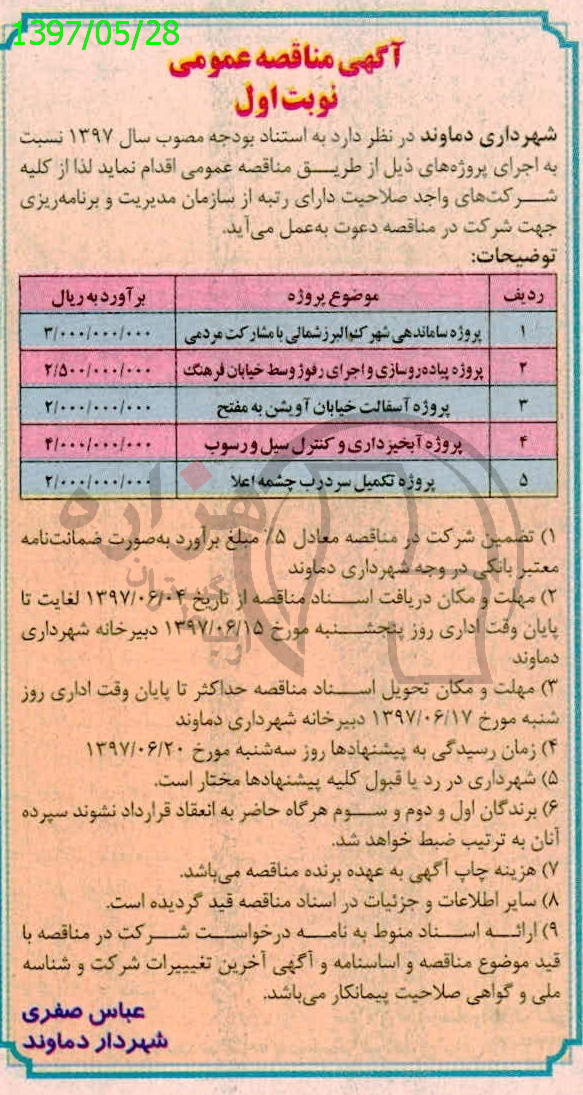 1397/05/28
آگهی مناقصه عمومی
نوبت اول
شهرداری دماوند در نظر دارد به استناد بودجه مصوب سال ۱۳۹۷ نسبت
به اجرای پروژه‌های ذیل از طریق مناقصه عمومی اقدام نماید لذا از کلیه
شرکت‌های واجد صلاحیت دارای رتبه از سازمان مدیریت و برنامه‌ریزی
جهت شرکت در مناقصه دعوت به‌عمل می‌آید.
توضیحات:
ردیف موضوع پروژه برآورد به ریال
۱ پروژه ساماندهی شهرک البرز شمالی با مشارکت مردمی ۳/۰۰۰/۰۰۰/۰۰۰
۲ پروژه پیاده‌روسازی و اجرای رفوژ وسط خیابان فرهنگ ۲/۵۰۰/۰۰۰/۰۰۰
۳ پروژه آسفالت خیابان آویشن به مفتح ۲/۰۰۰/۰۰۰/۰۰۰
۴ پروژه آبخیزداری و کنترل سیل و رسوب ۴/۰۰۰/۰۰۰/۰۰۰
۵ پروژه تکمیل سردرب چشمه اعلا ۲/۰۰۰/۰۰۰/۰۰۰
۱) تضمین شرکت در مناقصه معادل ۵٪ مبلغ برآورد به‌صورت ضمانت‌نامه
معتبر بانکی در وجه شهرداری دماوند
۲) مهلت و مکان دریافت اسناد مناقصه از تاریخ ۱۳۹۷/۰۶/۰۴ لغایت تا
پایان وقت اداری روز پنجشنبه مورخ ۱۳۹۷/۰۶/۱۵ دبیرخانه شهرداری
دماوند
۳) مهلت و مکان تحویل اسناد مناقصه حداکثر تا پایان وقت اداری روز
شنبه مورخ ۱۳۹۷/۰۶/۱۷ دبیرخانه شهرداری دماوند
۴) زمان رسیدگی به پیشنهادها روز سه‌شنبه مورخ ۱۳۹۷/۰۶/۲۰
۵) شهرداری در رد یا قبول کلیه پیشنهادها مختار است.
۶) برندگان اول و دوم و سوم هرگاه حاضر به انعقاد قرارداد نشوند سپرده
آنان به ترتیب ضبط خواهد شد.
۷) هزینه چاپ آگهی به عهده برنده مناقصه می‌باشد.
۸) سایر اطلاعات و جزئیات در اسناد مناقصه قید گردیده است.
۹) ارائه اسناد منوط به نامه درخواست شرکت در مناقصه با
قید موضوع مناقصه و اساسنامه و آگهی آخرین تغییرات شرکت و شناسه
ملی و گواهی صلاحیت پیمانکار می‌باشد.
عباس صفری
شهردار دماوند
هزاره